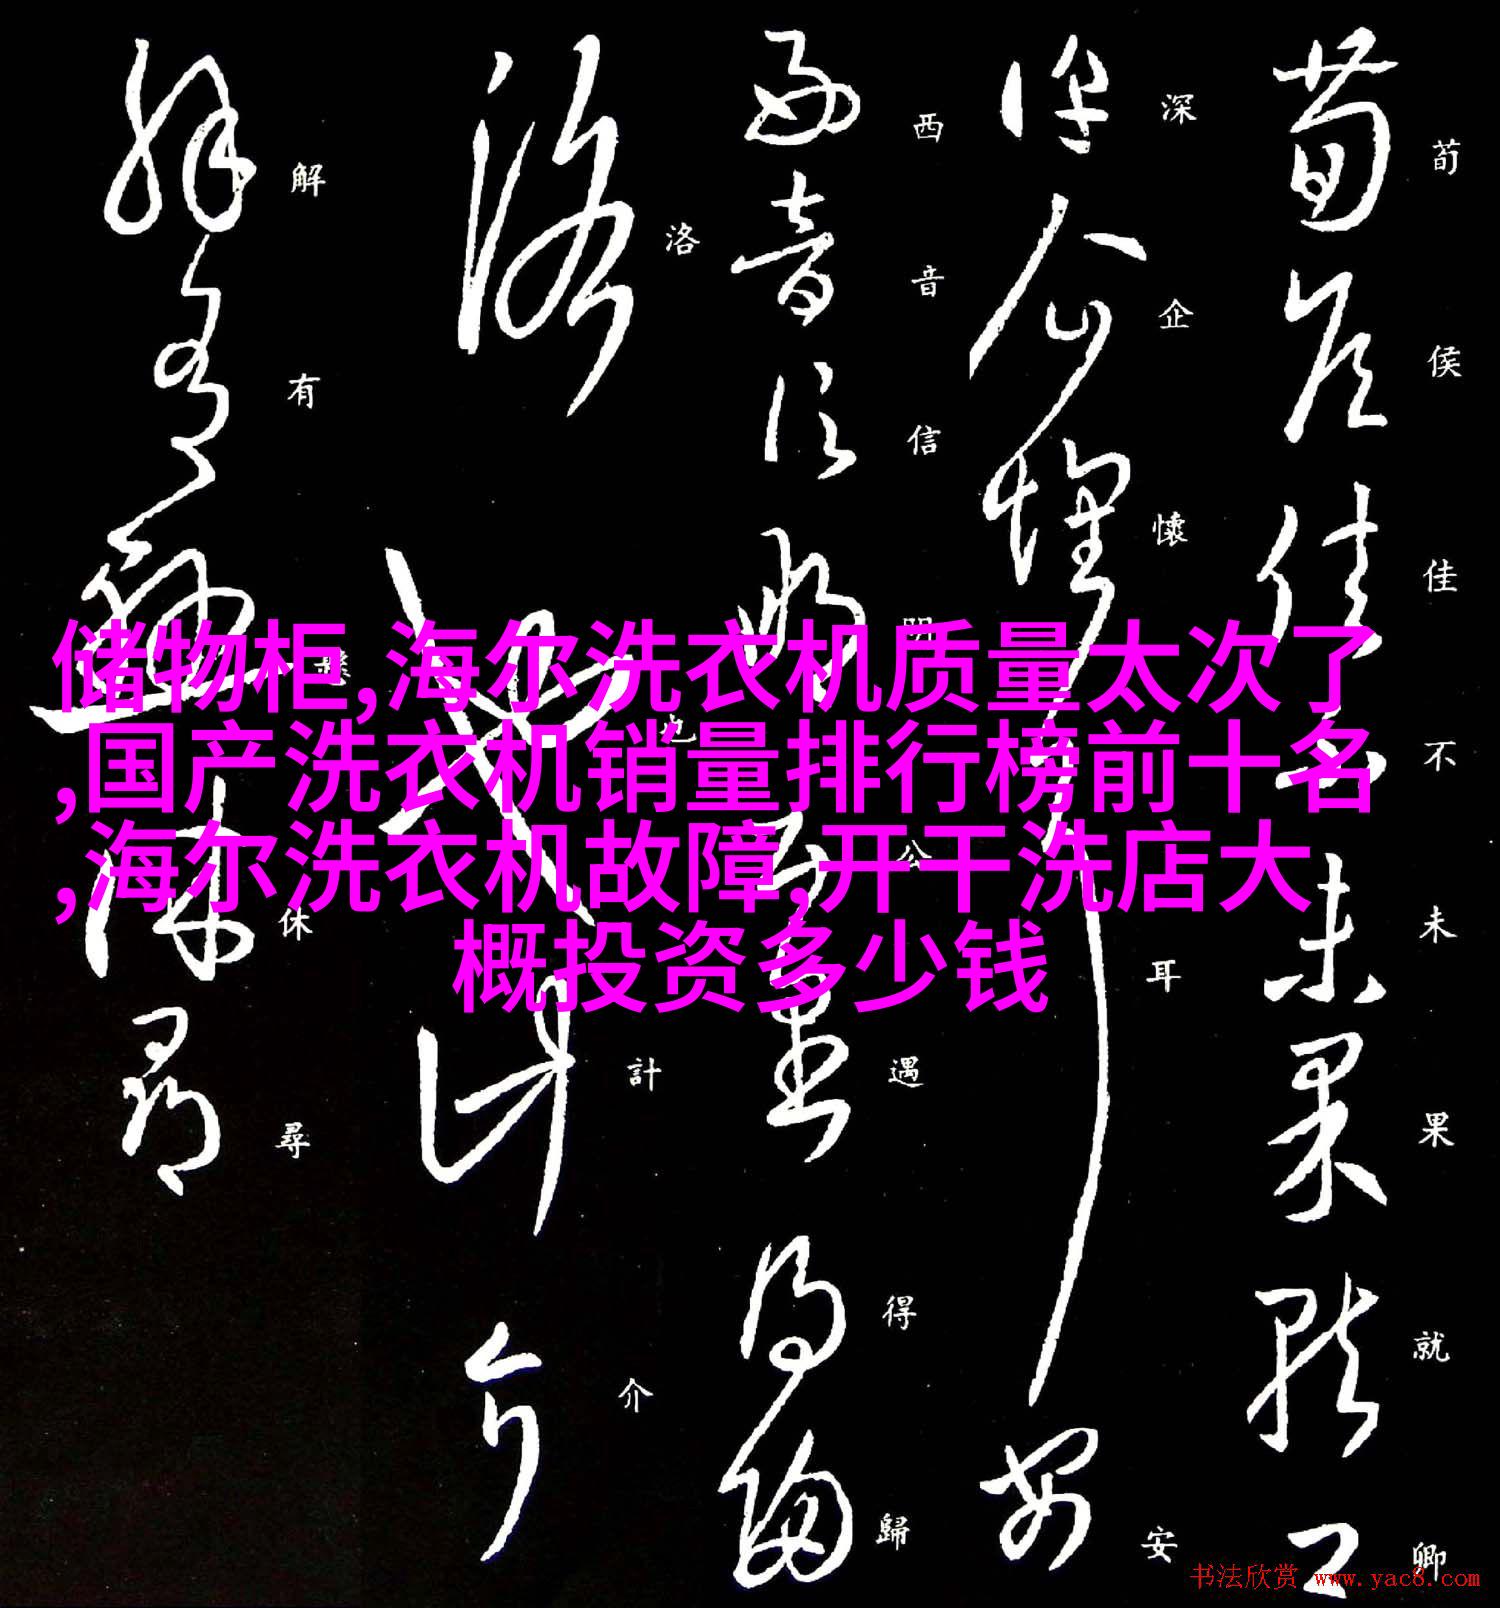 储物柜,海尔洗衣机质量太次了
,国产洗衣机销量排行榜前十名
,海尔洗衣机故障,开干洗店大
概投资多少钱
荀侯佳不未果就卿
深企懷耳安
西音信明公遇得歸
洛也計介
解有休尋
书法欣赏 www.yac8.com